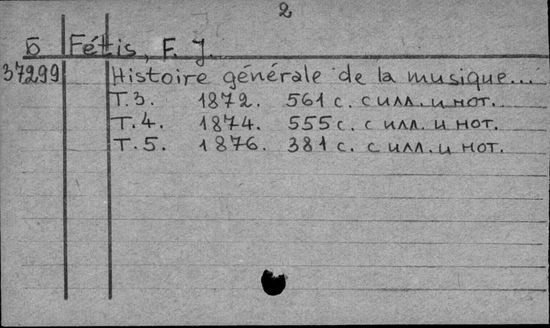 2
Б Fétis, F. J.
37299 Histoire générale de la musique...
T. 3. 1872. 561 с. с илл. и нот.
T. 4. 1874. 555 с. с илл. и нот.
T. 5. 1876. 381 с. с илл. и нот.